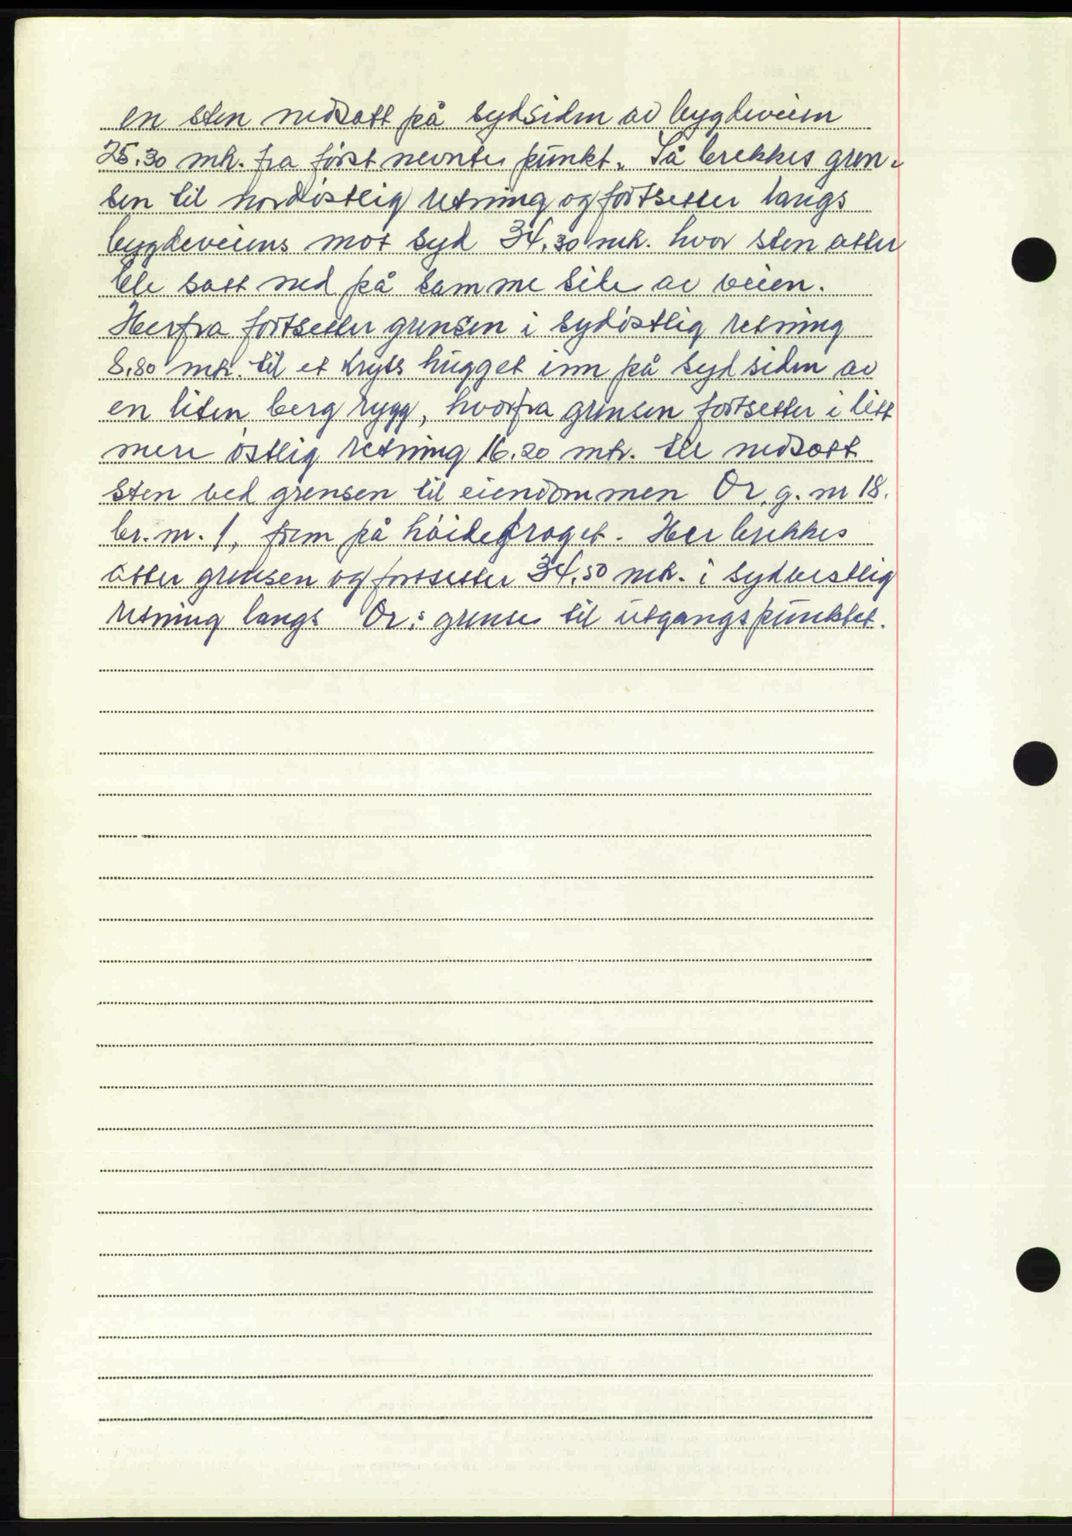 en sten nedsatt på sydsiden av bygdeveien
25.30 mtr. fra først nevnte punkt. Så brekkes gren-
sen til nordöstlig retning og fortsetter langs
bygdeveiens mot syd 34.30 mtr. hvor sten atter
ble satt ned på samme side av veien.
Herfra fortsetter grensen i sydöstlig retning
8.80 mtr. til et kryss hugget inn på sydsiden av
en liten berg rygg, hvorfra grensen fortsetter i litt
mere östlig retning 16.20 mtr. til nedsatt
sten ved grensen til eiendommen Or, g. nr 18.
br. nr. 1, frem på höidedraget. Her brekkes
atter grensen og fortsetter 34.50 mtr. i sydvestlig
retning langs Or,s grense til utgangspunktet.